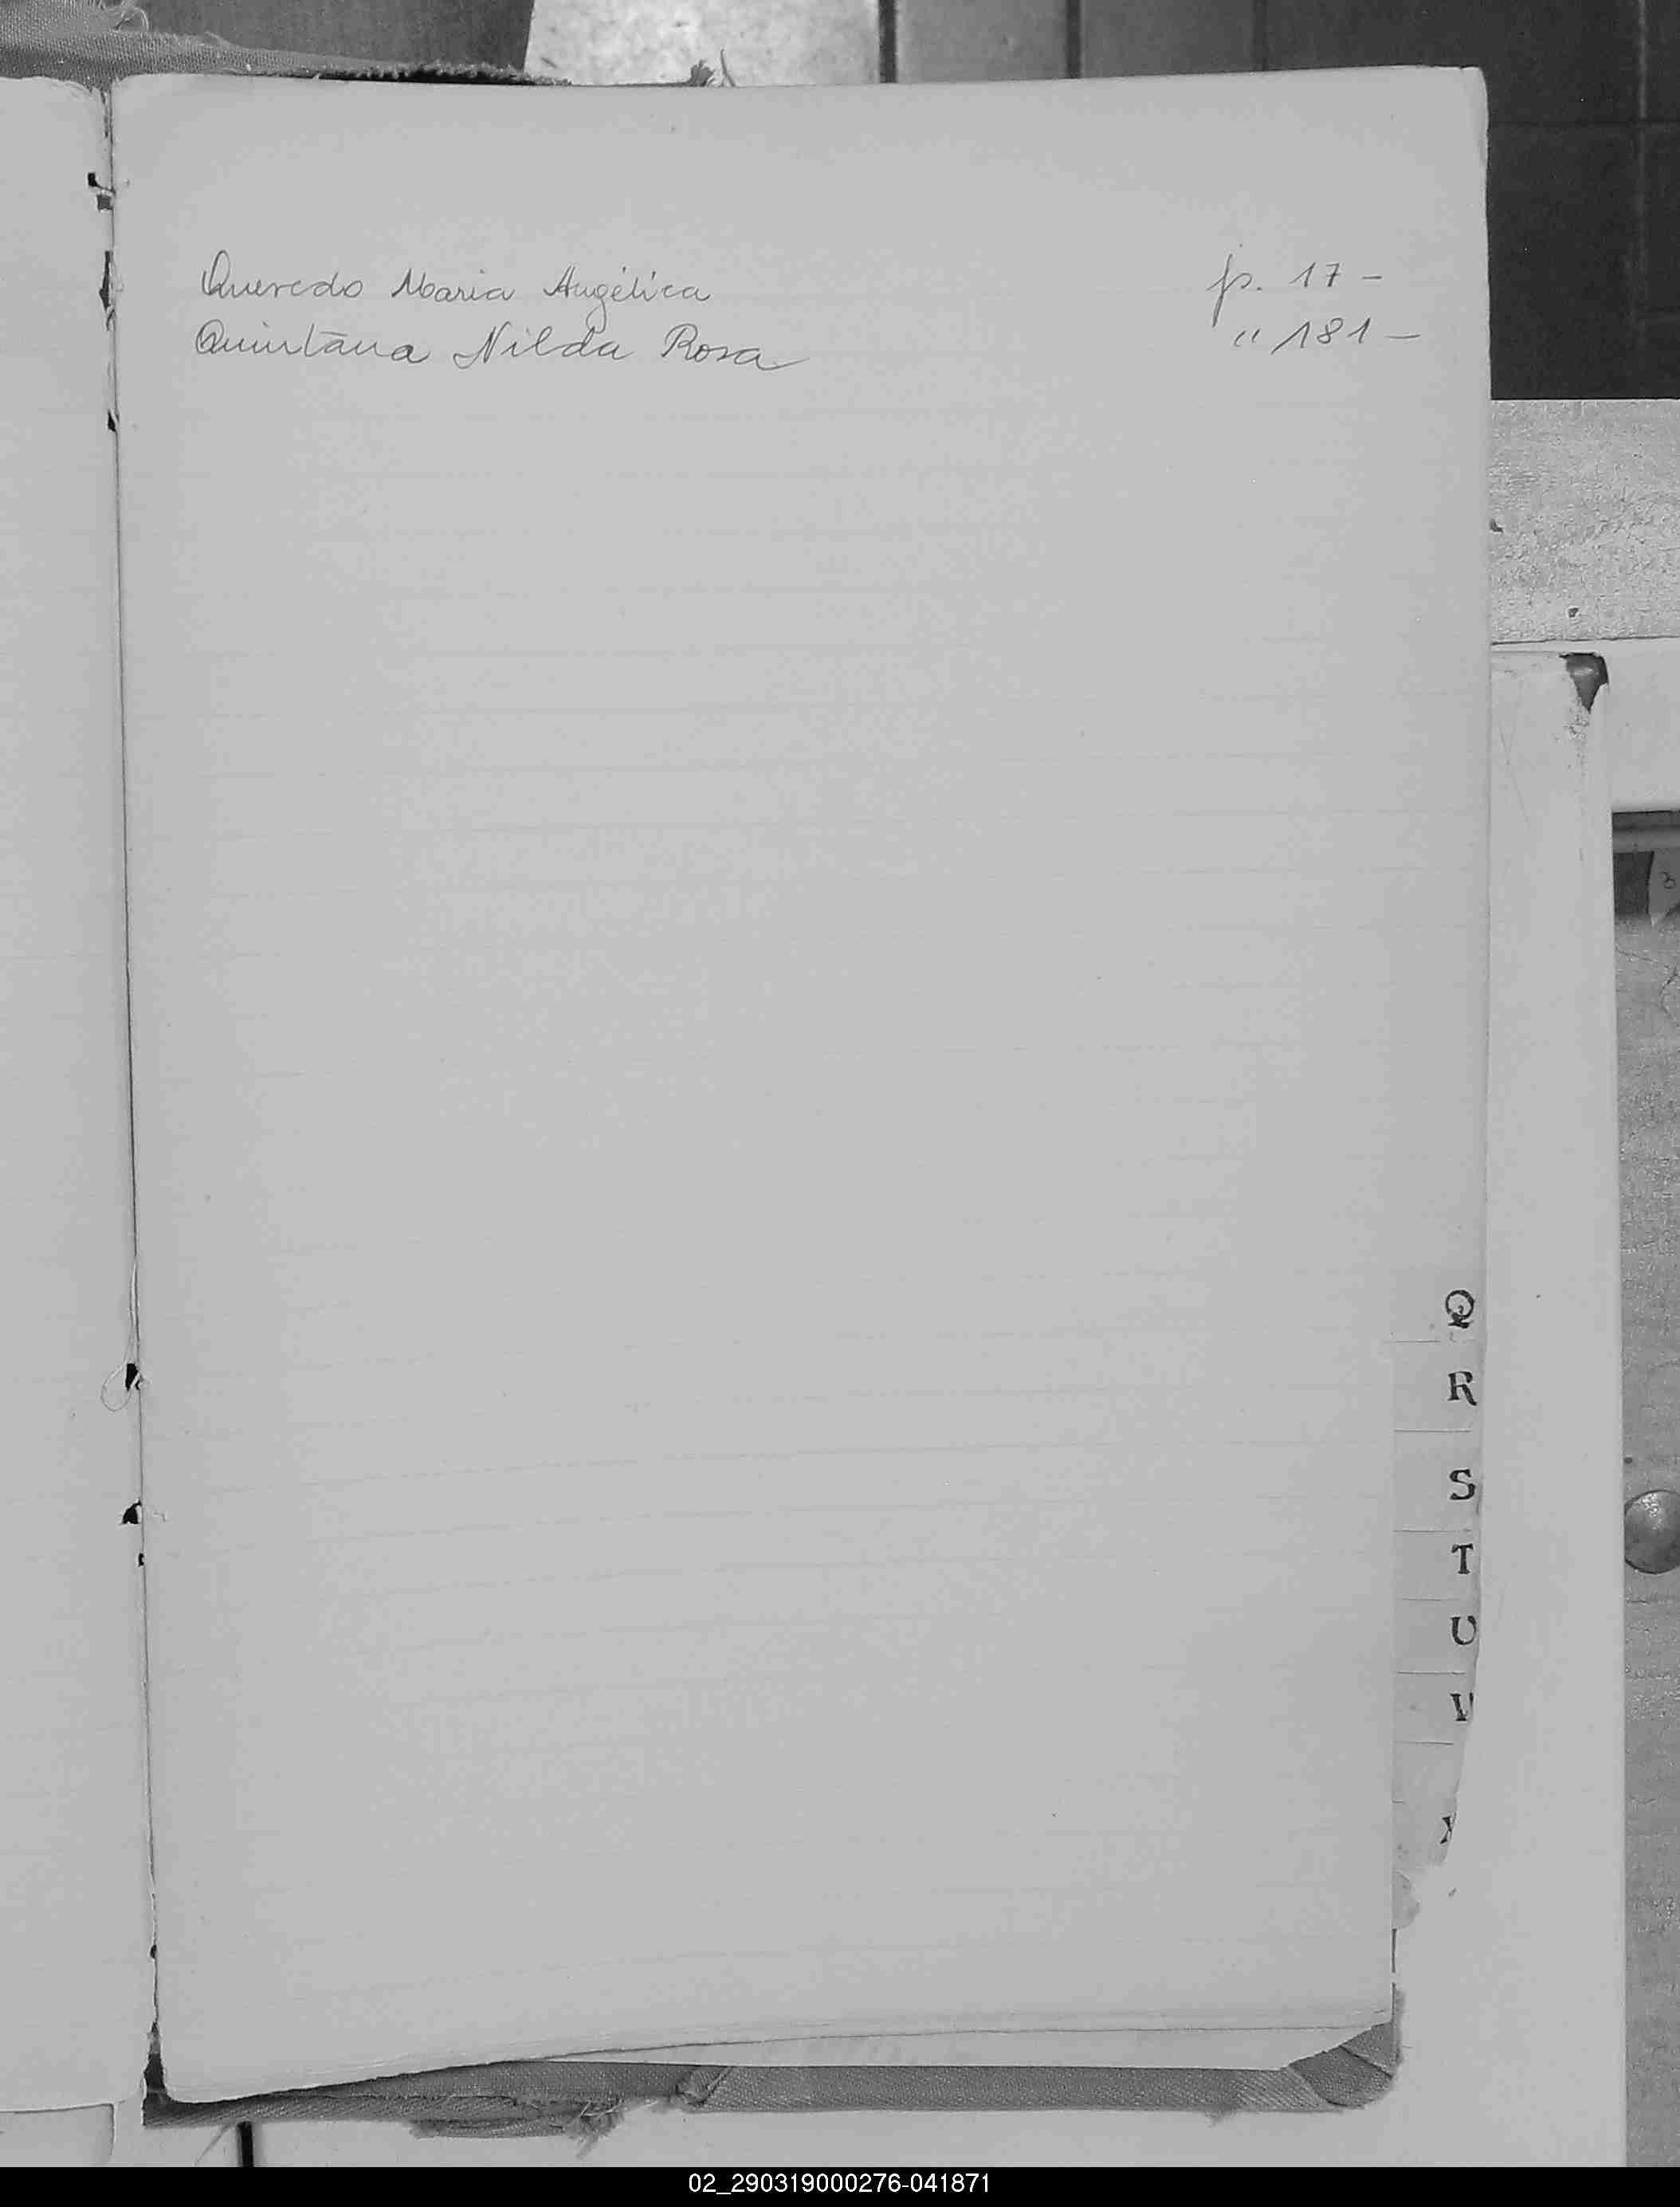 Quevedo Maria Angélica p. 17 -
Quintana Nilda Rosa " 181 -
Q
R
S
T
U
V
X
3
02_290319000276-041871